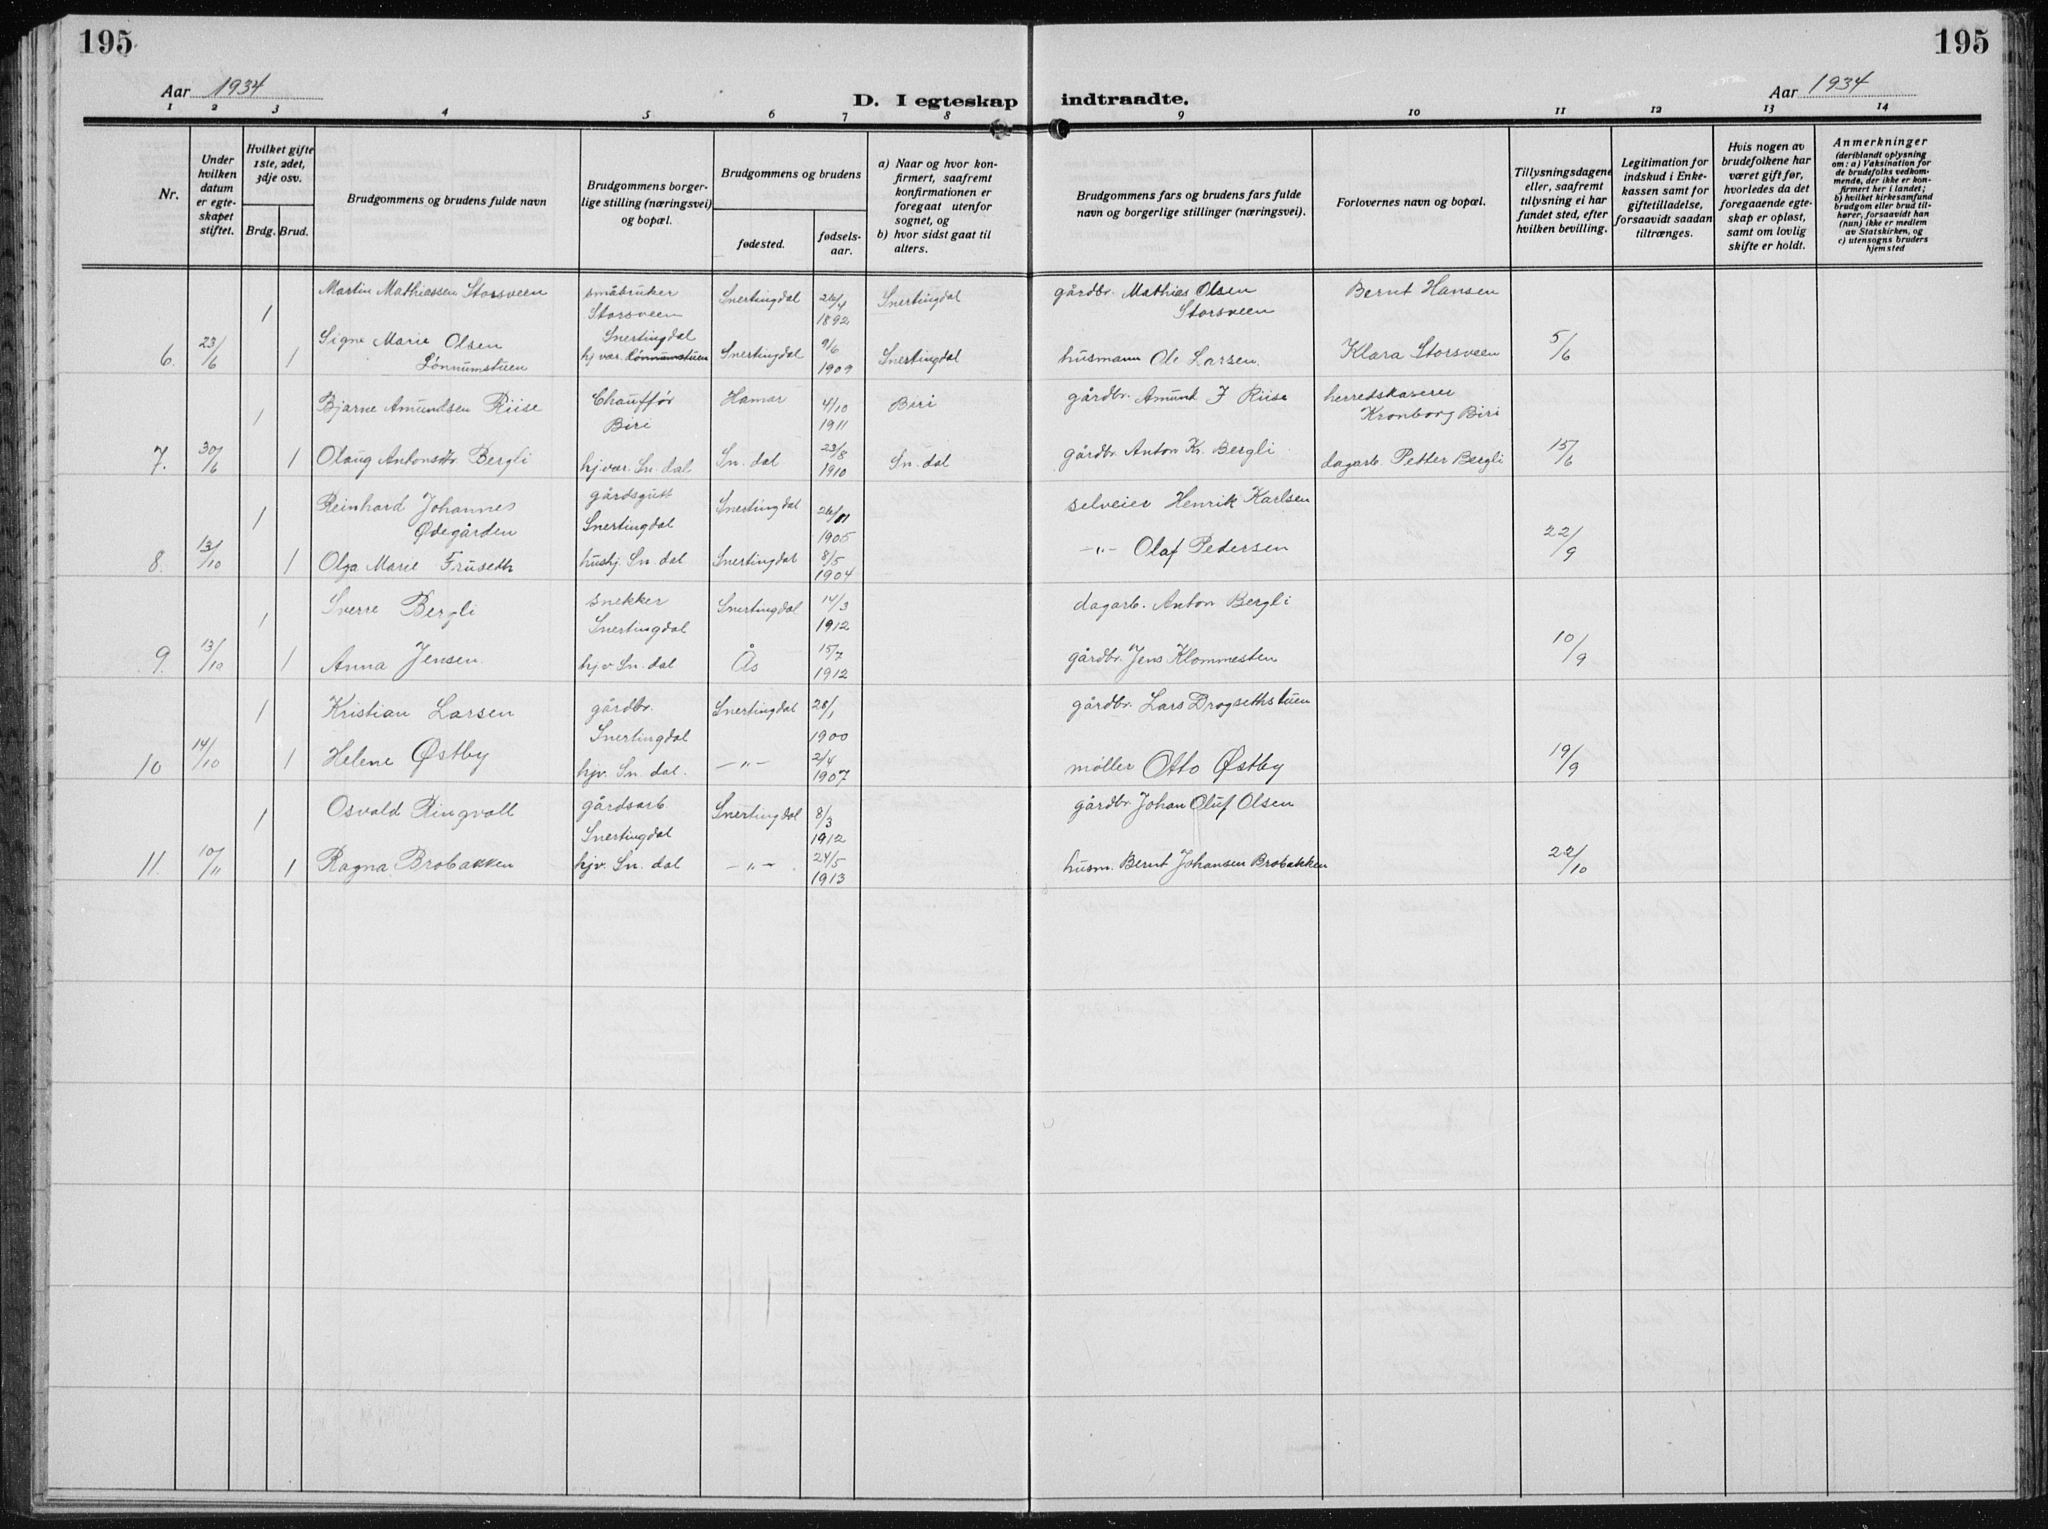 195
195
Aar 1934
D. I egteskap indtraadte.
Aar 1934
1 2 3 4 5 6 7 8 9 10 11 12 13 14
Nr.
Under hvilken datum er egteskapet stiftet.
Hvilket gifte 1ste, 2det, 3dje osv.
Brdg. Brud.
Brudgommens og brudens fulde navn
Brudgommens borgerlige stilling (næringsvei) og bopæl.
Brudgommens og brudens
fødested.
fødselsaar.
a) Naar og hvor konfirmert, saafremt konfirmationen er foregaat utenfor sognet, og
b) hvor sidst gaat til alters.
Brudgommens fars og brudens fars fulde navn og borgerlige stillinger (næringsvei).
Forlovernes navn og bopæl.
Tillysningsdagene eller, saafremt tillysning ei har fundet sted, efter hvilken bevilling.
Legitimation for indskud i Enkekassen samt for giftetilladelse, forsaavidt saadan tiltrænges.
Hvis nogen av brudefolkene har været gift før, hvorledes da det foregaaende egteskap er opløst, samt om lovlig skifte er holdt.
Anmerkninger
(deriblandt oplysning om: a) Vaksination for de brudefolks vedkommende, der ikke er konfirmert her i landet; b) hvilket kirkesamfund brudgom eller brud tilhører, forsaavidt han (hun) ikke er medlem av Statskirken, og c) utensogns bruders hjemsted
1 Martin Mathiassen Storsveen småbruker Storsveen Snertingdal Snertingdal 26/4 1892 Snertingdal gårdbr. Mathias Olsen Storsveen Bernt Hansen
6. 23/6 1 Signe Marie Olsen Lønnumstuen hj. vær. Lønnumstuen Snertingdal 9/6 1909 Snertingdal husmann Ole Larsen. Klara Storsveen 5/6
1 Bjarne Amundsen Riise Chauffør Biri Hamar 4/10 1911 Biri gårdbr. Amund J Riise herredskaserer Kronborg Biri
7. 30/6 1 Olaug Antonsdtr. Bergli hj.vær. Sn. dal Sn. dal 23/8 1910 Sn. dal gårdbr. Anton Kr. Bergli dagarb. Petter Bergli 15/6
1 Reinhard Johannes Ødegården gårdsgutt Snertingdal Snertingdal 26/11 1905 selveier Henrik Karlsen
8. 13/10 1 Olga Marie Fruseth hushj. Sn. dal Snertingdal 8/5 1904 -"- Olaf Pedersen 22/9
1 Sverre Bergli snekker Snertingdal Snertingdal 14/3 1912 dagarb. Anton Bergli
9. 13/10 1 Anna Jensen hjv Sn. dal Ås 15/7 1912 gårdbr. Jens Klommesten 10/9
1 Kristian Larsen gårdbr. Snertingdal Snertingdal 28/1 1900 gårdbr. Lars Drogsethstuen
10 14/10 1 Helene Østby hjv. Sn. dal. -"- 2/4 1907 møller Otto Østby 19/9
1 Osvald Ringvoll gårdsarb Snertingdal Snertingdal 8/3 1912 gårdbr Johan Oluf Olsen
11. 10/11 1 Ragna Brobakken hjv. Sn. dal -"- 24/5 1913 husm. Bernt Johansen Brobakken 22/10